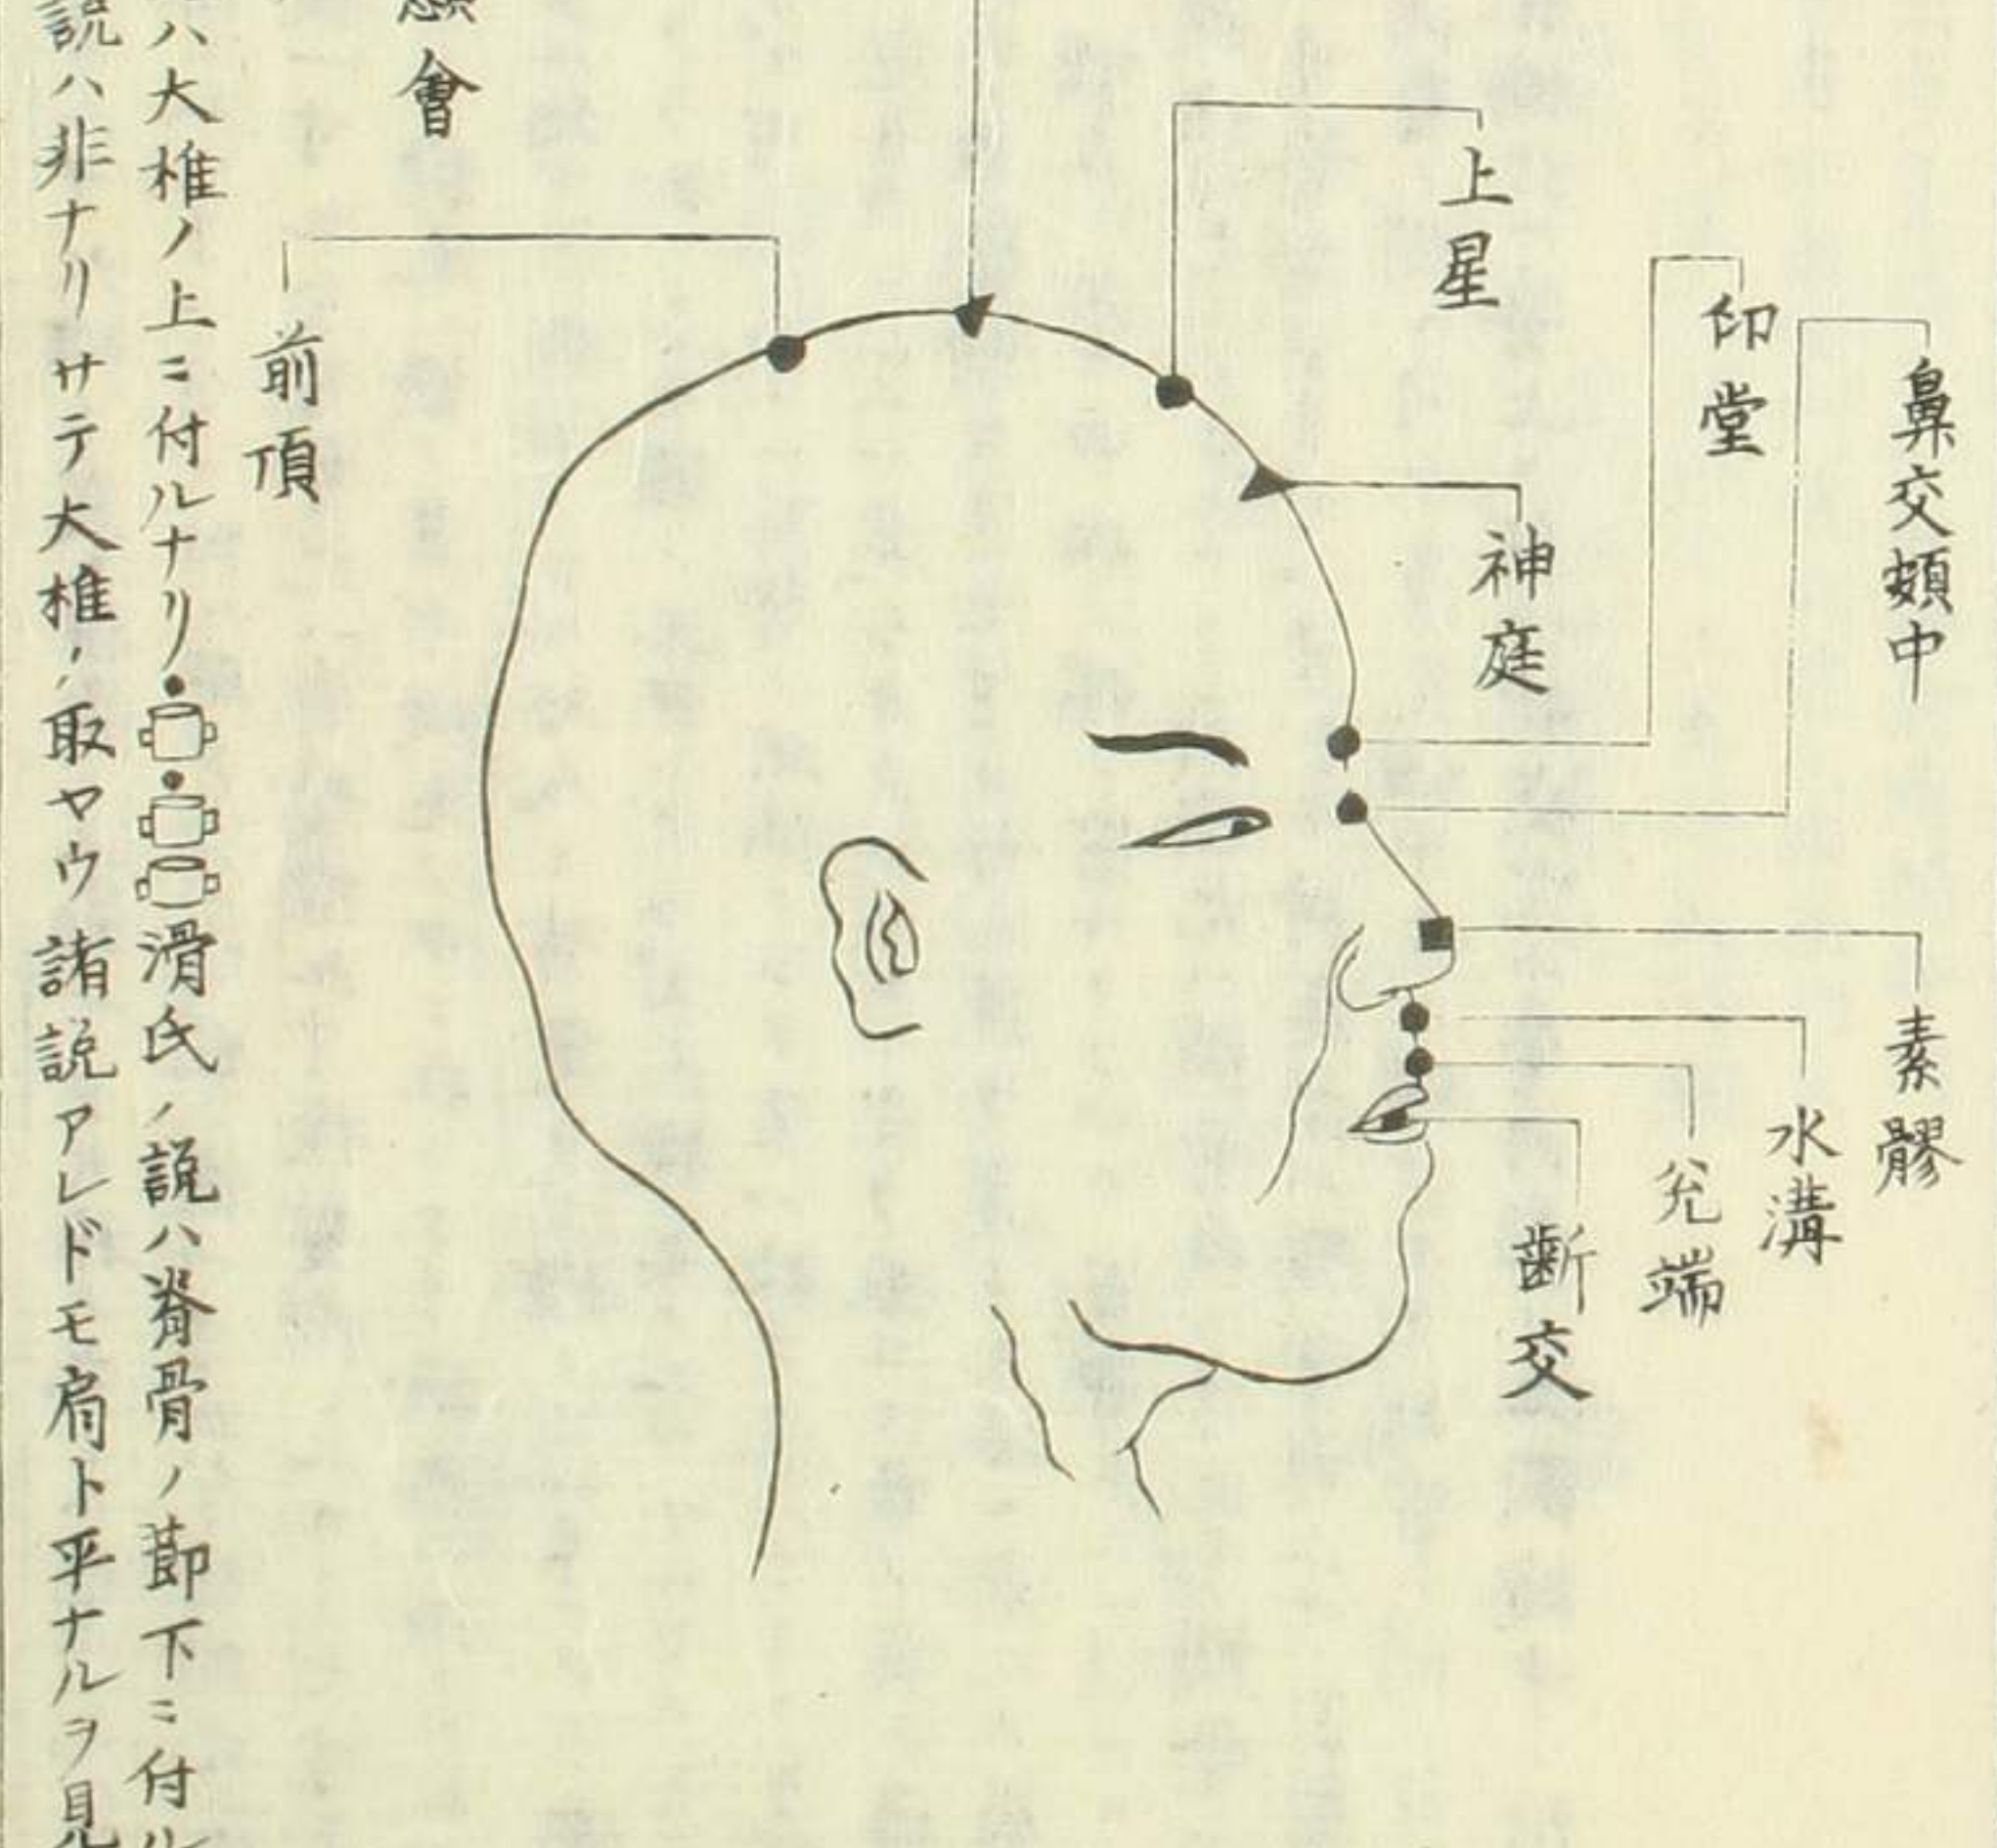 鼻交頞中
印堂
上星
神庭
素髎
水溝
兊端
齗交
會
前頂
ハ大椎ノ上ニ付ルナリ
滑氏ノ説ハ脊骨ノ節下ニ付ル
説ハ非ナリサテ大椎ノ取ヤウ諸説アレドモ肩ト平ナルヲ見